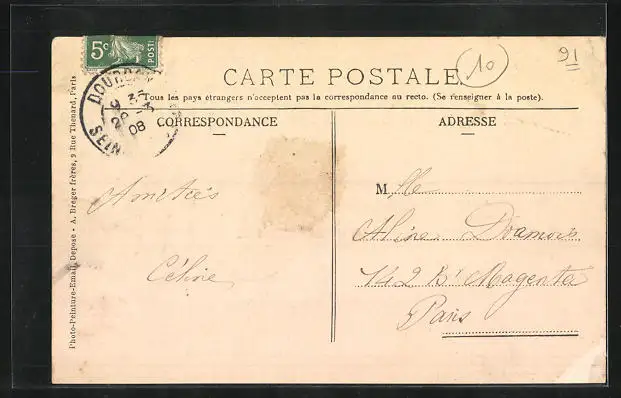 5c
POSTES
10
91
CARTE POSTALE
Tous les pays étrangers n'acceptent pas la correspondance au recto. (Se renseigner à la poste).
DOURDAN
9 35
20 -3
08
SEINE
CORRESPONDANCE
ADRESSE
Amitiés
Céline
M lle
Aline
142 Bd Magenta
Paris
Photo-Peinture-Email, Deposé - A. Breger frères, 9 Rue Thenard, Paris